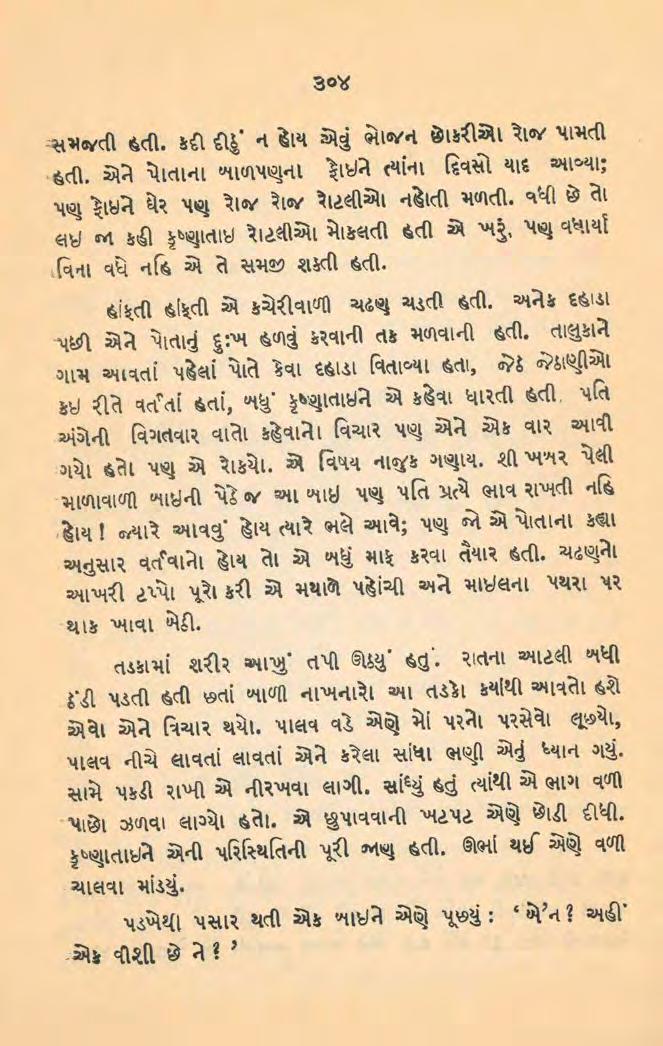 ૩૦૪
સમજતી હતી. કદી દીઠું ન હોય એવું ભોજન છોકરીઓ રોજ પામતી
હતી. એને પોતાના બાળપણના ફોઇને ત્યાંના દિવસો યાદ આવ્યા;
પણ ફોઇને ઘેર પણ રોજ રોજ રોટલીઓ નહોતી મળતી. વધી છે તો
લઇ જા કહી કૃષ્ણાતાઇ રોટલીઓ મોકલતી હતી એ ખરું, પણ વધાર્યા
વિના વધે નહિ એ તે સમજી શકતી હતી.
હાંફતી હાંફતી એ કચેરીવાળી ચઢણ ચડતી હતી. અનેક દહાડા
પછી એને પોતાનું દુઃખ હળવું કરવાની તક મળવાની હતી. તાલુકાને
ગામ આવતાં પહેલાં પોતે કેવા દહાડા વિતાવ્યા હતા, જેઠ જેઠાણીઓ
કઇ રીતે વર્તતાં હતાં, બધું કૃષ્ણાતાઇને એ કહેવા ધારતી હતી. પતિ
અંગેની વિગતવાર વાતો કહેવાનો વિચાર પણ એને એક વાર આવી
ગયો હતો પણ એ રોકયો. એ વિષય નાજુક ગણાય. શી ખબર પેલી
માળાવાળી બાઇની પેઠે જ આ બાઇ પણ પતિ પ્રત્યે ભાવ રાખતી નહિ
હોય ! જ્યારે આવવું હોય ત્યારે ભલે આવે; પણ જો એ પોતાના કહ્યા
અનુસાર વર્તવાનો હોય તો એ બધું માફ કરવા તૈયાર હતી. ચઢણનો
આખરી ટપ્પો પૂરો કરી એ મથાળે પહોંચી અને માઇલના પથરા પર
થાક ખાવા બેઠી.
તડકામાં શરીર આખું તપી ઊઠયું હતું. રાતના આટલી બધી
ઠંડી પડતી હતી છતાં બાળી નાખનારો આ તડકો કયાંથી આવતો હશે
એવો એને વિચાર થયો. પાલવ વડે એણે મોં પરનો પરસેવો લૂછયો,
પાલવ નીચે લાવતાં લાવતાં એને કરેલા સાંધા ભણી એનું ધ્યાન ગયું.
સામે પકડી રાખી એ નીરખવા લાગી. સાંધ્યું હતું ત્યાંથી એ ભાગ વળી
પાછો ઝળવા લાગ્યો હતો. એ છુપાવવાની ખટપટ એણે છોડી દીધી.
કૃષ્ણાતાઇને એની પરિસ્થિતિની પૂરી જાણ હતી. ઊભાં થઈ એણે વળી
ચાલવા માંડયું.
પડખેથી પસાર થતી એક બાઇને એણે પૂછયું : ‘ બે’ન ? અહીં
એક વીશી છે ને ? ’